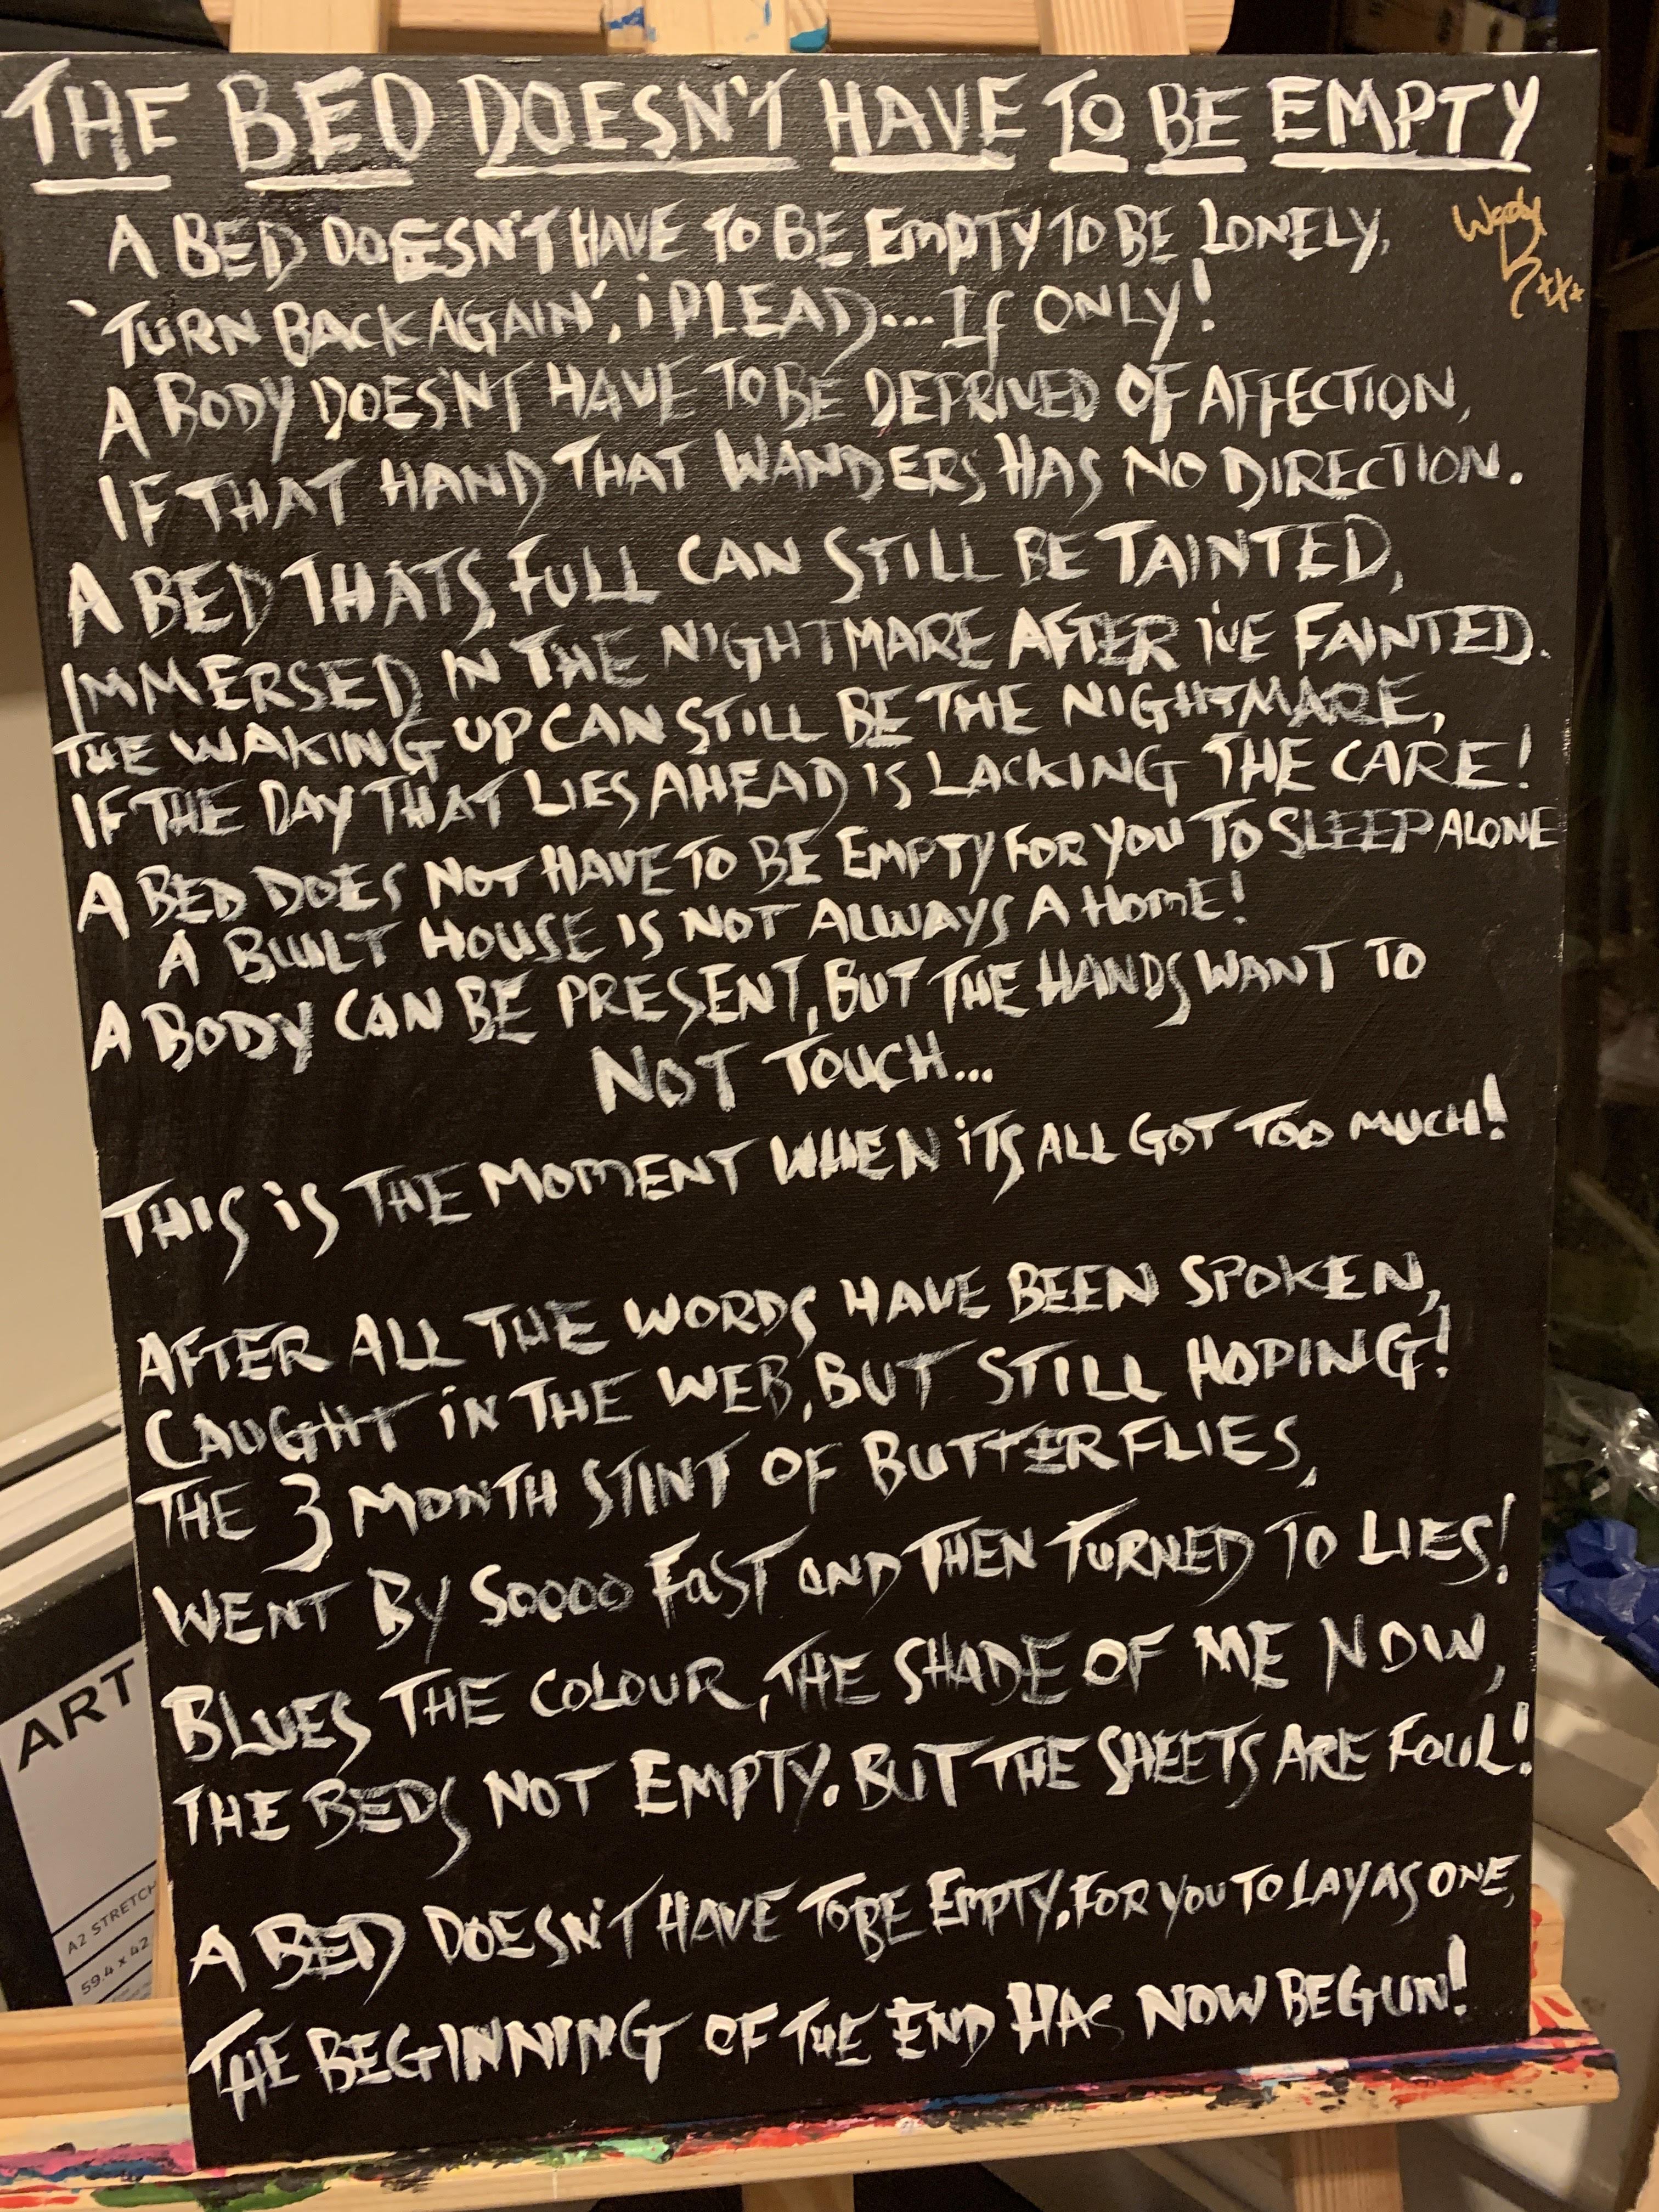 THE BED DOESN'T HAVE TO BE EMPTY
A BED DOESN'T HAVE TO BE EMPTY TO BE LONELY,
'TURN BACK AGAIN', i PLEAD... If ONLY!
A BODY DOESN'T HAVE TO BE DEPRIVED OF AFFECTION,
IF THAT HAND THAT WANDERS HAS NO DIRECTION.
A BED THATS FULL CAN STILL BE TAINTED,
IMMERSED IN THE NIGHTMARE AFTER i'VE FAINTED.
THE WAKING UP CAN STILL BE THE NIGHTMARE,
IF THE DAY THAT LIES AHEAD IS LACKING THE CARE!
A BED DOES NOT HAVE TO BE EMPTY FOR YOU TO SLEEP ALONE
A BUILT HOUSE IS NOT ALWAYS A HOME!
A BODY CAN BE PRESENT, BUT THE HANDS WANT TO
NOT TOUCH...
THIS iS THE MOMENT WHEN iTS ALL GOT TOO MUCH!
AFTER ALL THE WORDS HAVE BEEN SPOKEN,
CAUGHT iN THE WEB, BUT STILL HOPING!
THE 3 MONTH STINT OF BUTTERFLIES,
WENT BY SOOOO FAST AND THEN TURNED TO LIES!
BLUES THE COLOUR, THE SHADE OF ME NOW,
THE BEDS NOT EMPTY. BUT THE SHEETS ARE FOUL!
A BED DOESN'T HAVE TO BE EMPTY. FOR YOU TO LAY AS ONE,
THE BEGINNING OF THE END HAS NOW BEGUN!
ART
A2 STRETCH
59.4 x 42